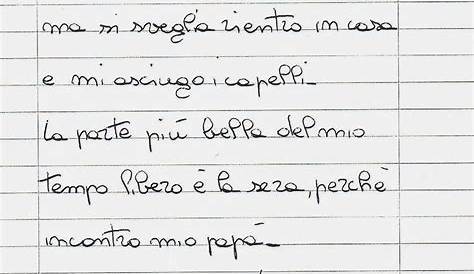 ma si sveglia rientro in casa
e mi asciugo i capelli_
la parte più bella del mio
tempo libero è la sera, perchè
incontro mio papà_